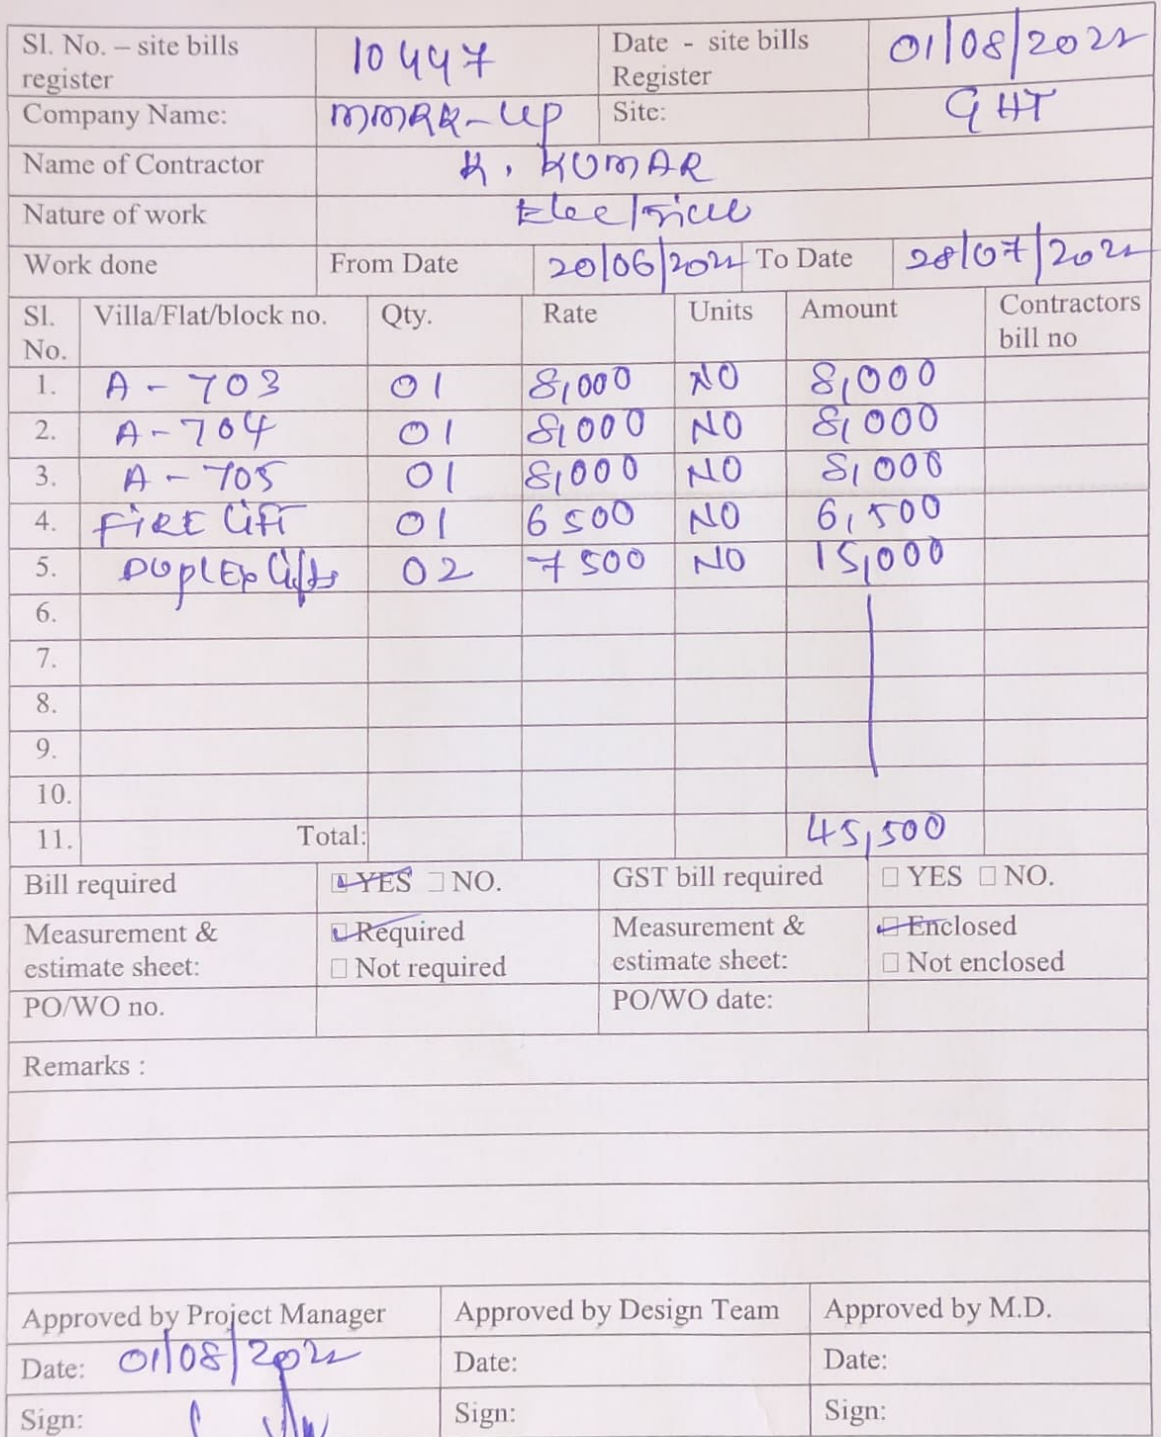 Sl. No. – site bills register 10447 Date - site bills Register 01/08/2022
Company Name: MMRK-UP Site: GHT
Name of Contractor K. KUMAR
Nature of work Electrical
Work done From Date 20/06/2022 To Date 28/07/2022
Sl. No. Villa/Flat/block no. Qty. Rate Units Amount Contractors bill no
1. A - 703 01 8,000 NO 8,000
2. A - 704 01 8,000 NO 8,000
3. A - 705 01 8,000 NO 8,000
4. FIRE Lift 01 6500 NO 6,500
5. DUplEx Lifts 02 7500 NO 15,000
6.
7.
8.
9.
10.
11. Total: 45,500
Bill required YES NO. GST bill required YES NO.
Measurement & estimate sheet: Required Not required Measurement & estimate sheet: Enclosed Not enclosed
PO/WO no. PO/WO date:
Remarks :
Approved by Project Manager Approved by Design Team Approved by M.D.
Date: 01/08/2022 Date: Date:
Sign: Sign: Sign: